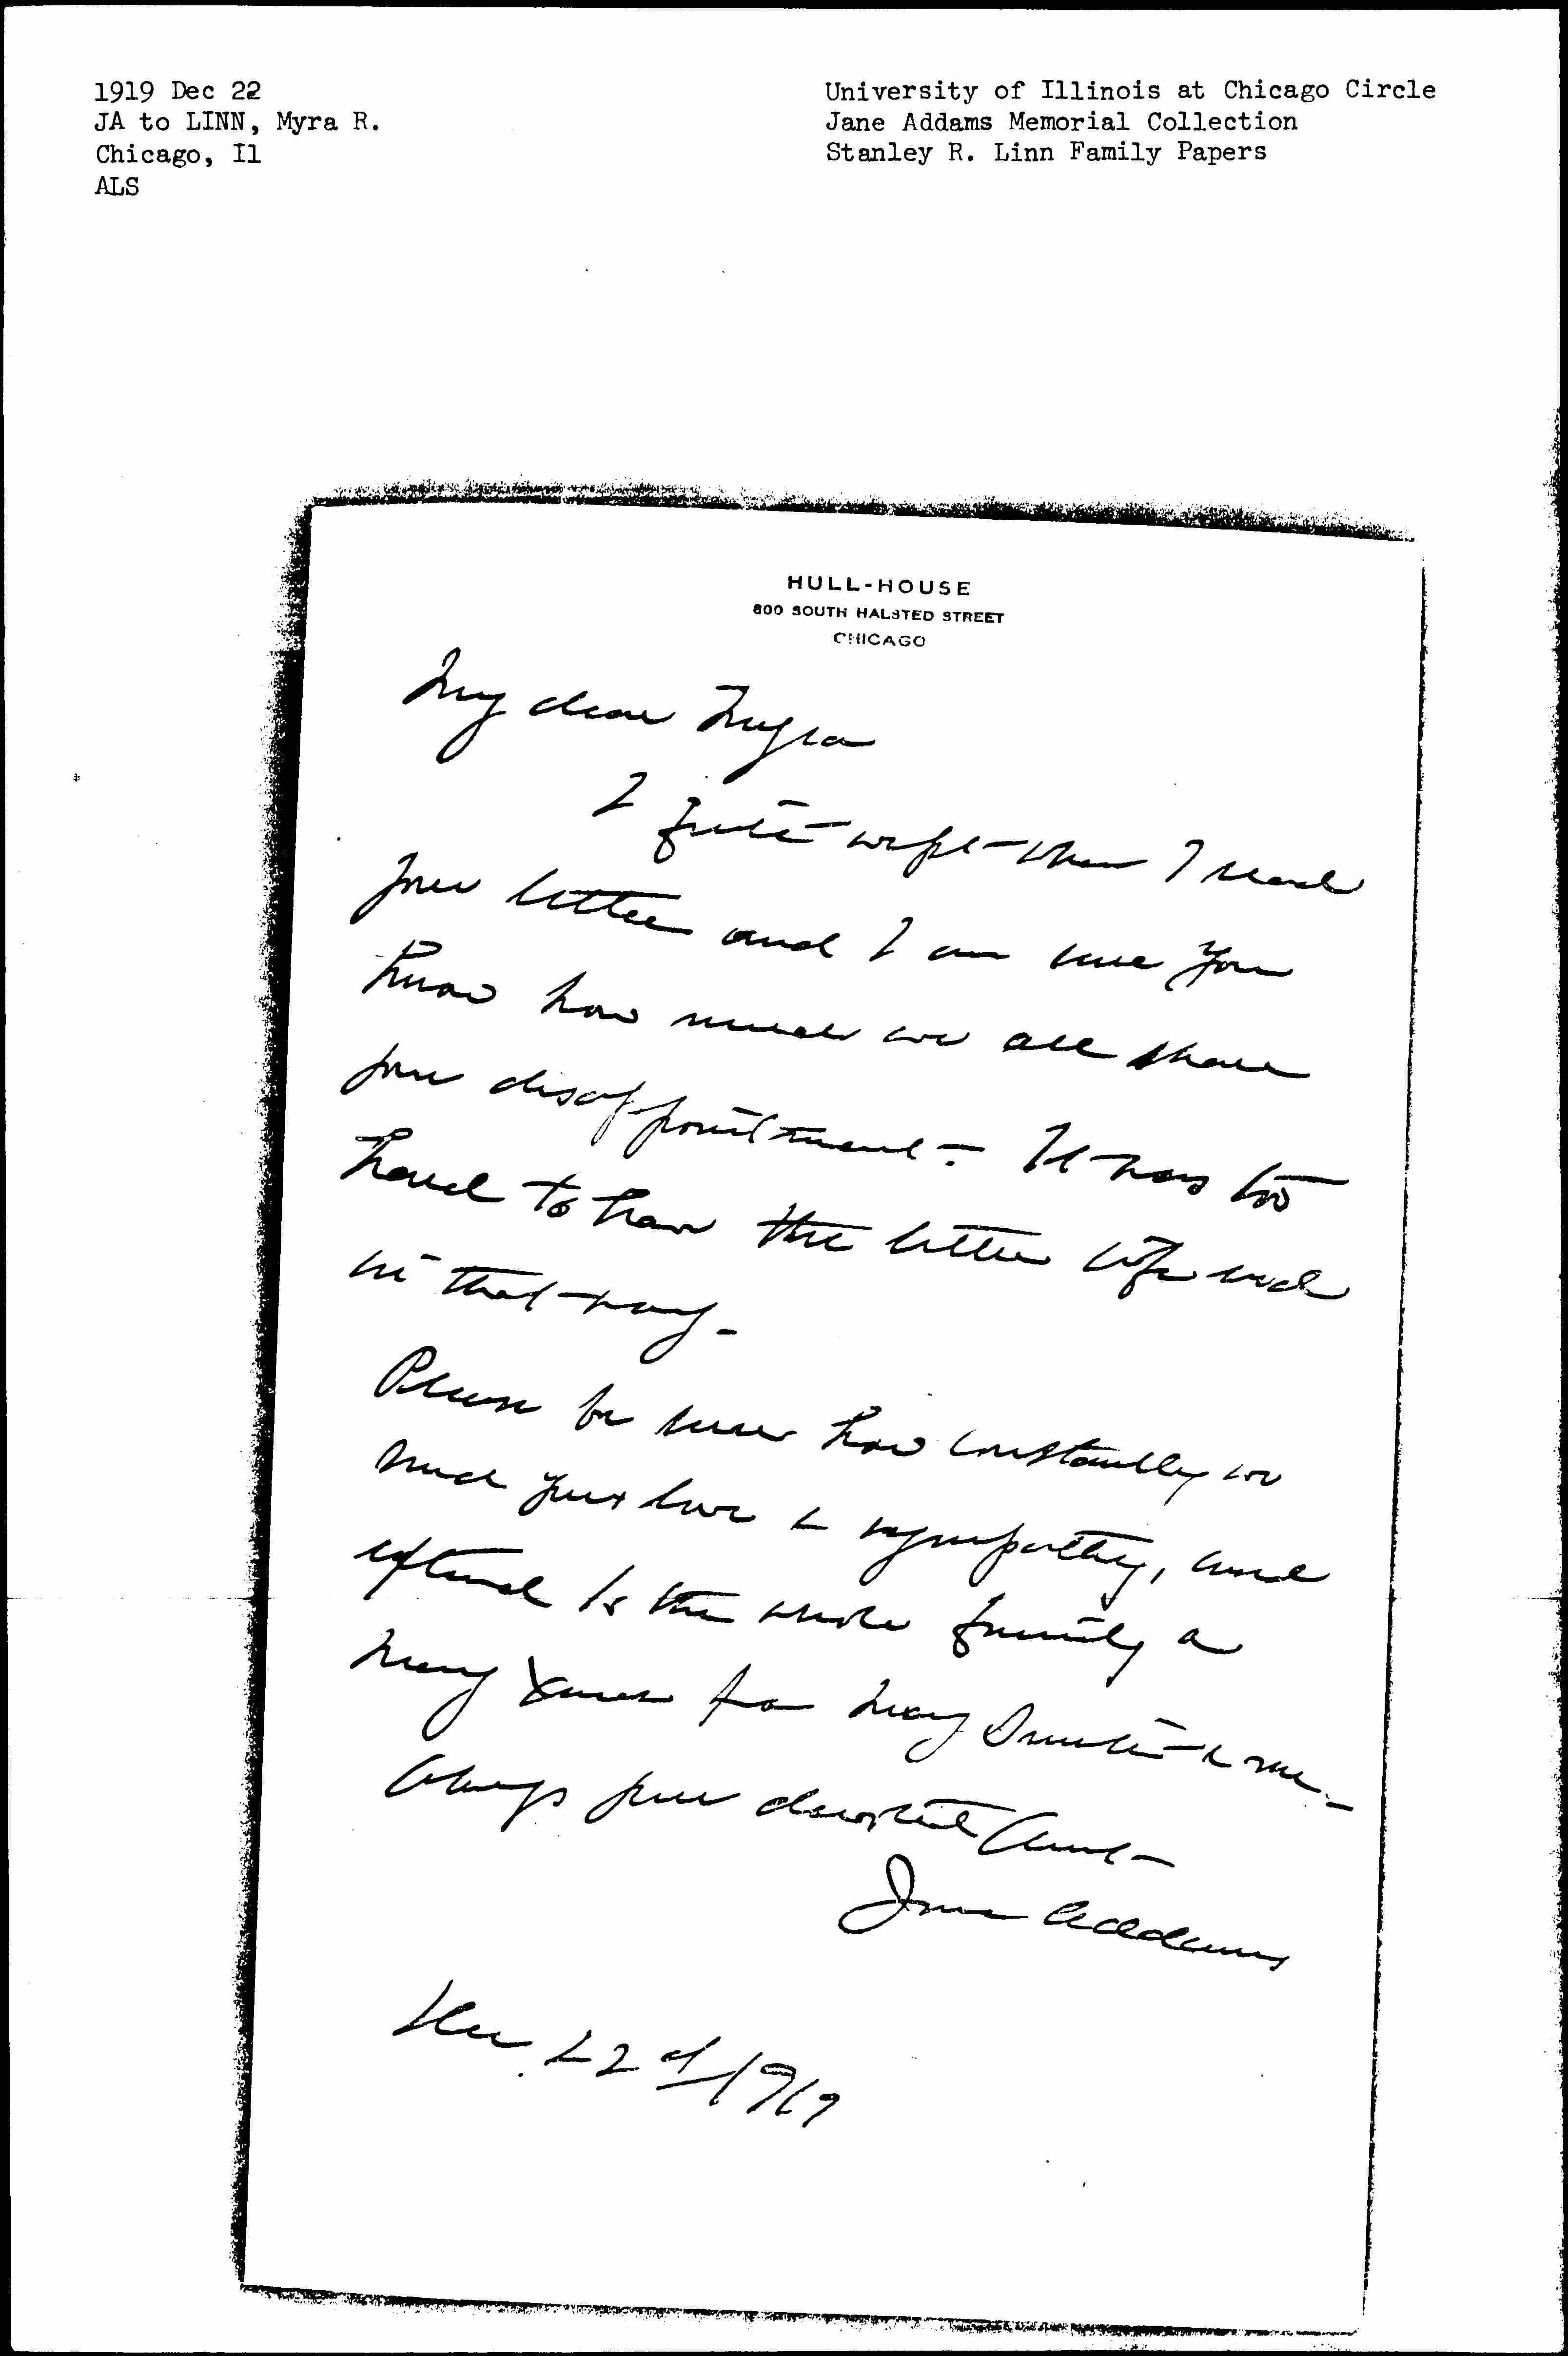 1919 Dec 22
JA to LINN, Myra R.
Chicago, Il
ALS
University of Illinois at Chicago Circle
Jane Addams Memorial Collection
Stanley R. Linn Family Papers
HULL-HOUSE
800 SOUTH HALSTED STREET
CHICAGO
My dear Myra
I quite wept when I read
your letter and I am sure you
know how much we all share
your disappointment - It was too
hard to have the little life end
in that way -
Please be sure how constantly we
send you love & sympathy, and
extend to the whole family a
Merry Xmas from Mary Smith & me -
Always your devoted Aunt -
Jane Addams
Dec 22d 1919